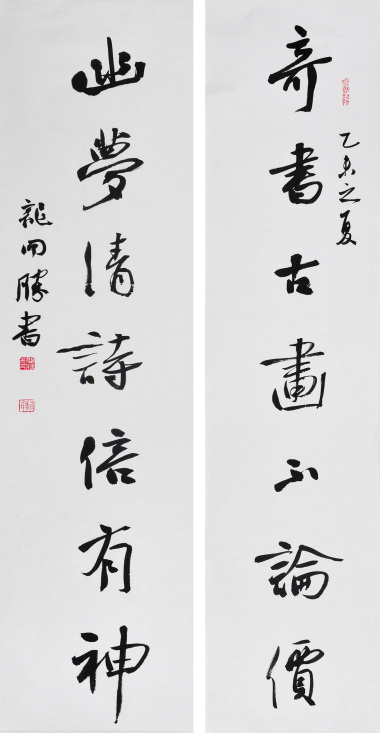 奇書古畫不論價
乙未之夏
幽夢清詩信有神
龍開勝書